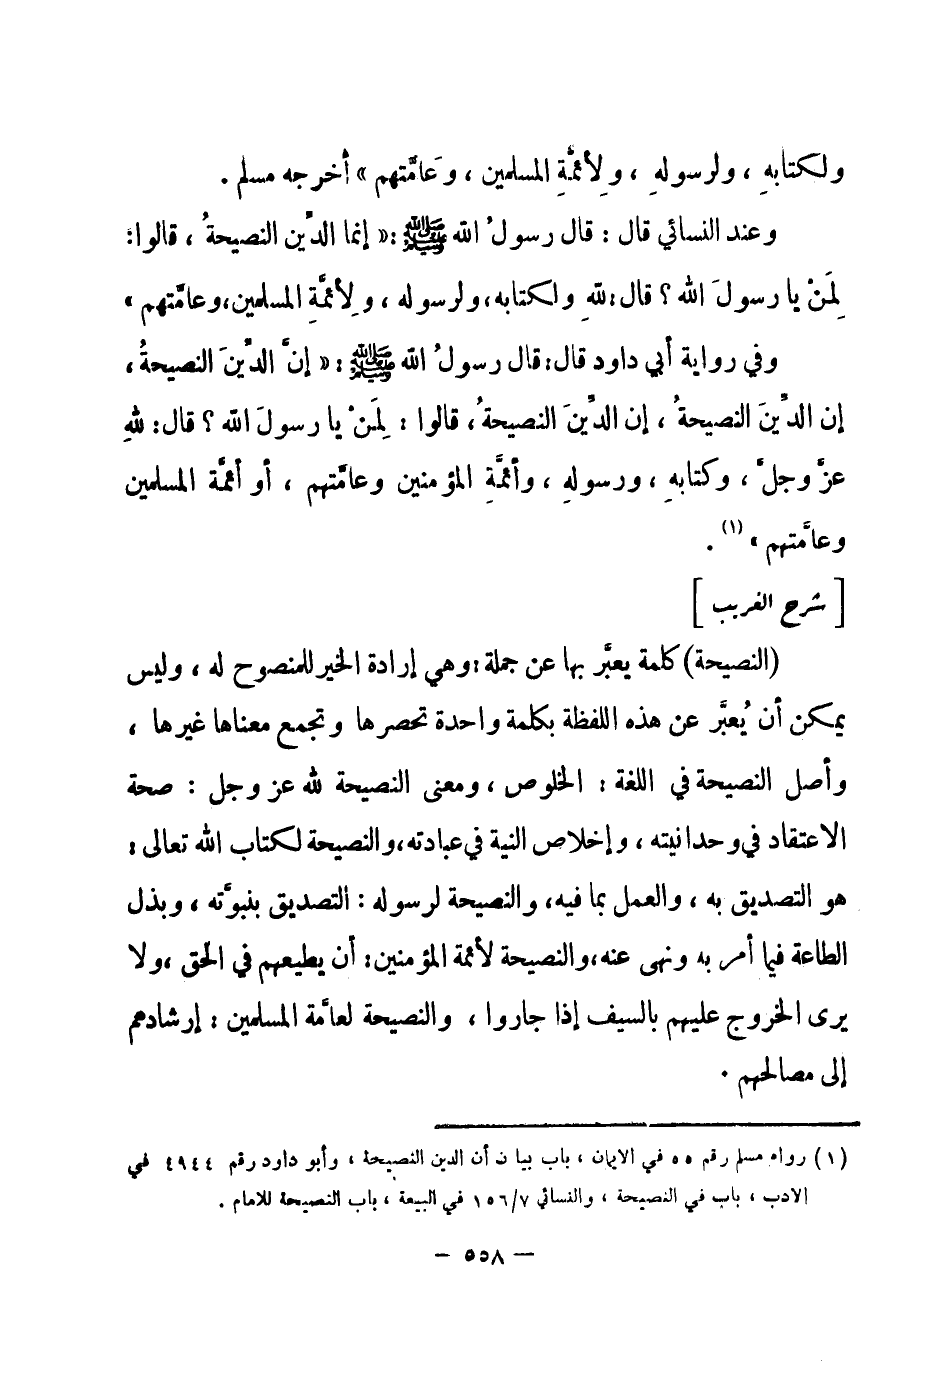 ولكتابهِ ، ولرسولهِ ، ولِأئمَّةِ المسلمين ، وعَامَّتهم » أخرجه مسلم .
وعند النسائي قال : قال رسولُ الله ﷺ :« إنما الدِّين النصيحةُ ، قالوا:
لِمَنْ يا رسولَ الله ؟ قال:للهِ ولكتابه،ولرسوله ، ولِأئمَّةِ المسلمين،وعامَّتهم »
وفي رواية أبي داود قال:قال رسولُ الله ﷺ :« إنَّ الدِّينَ النصيحةُ ،
إن الدِّينَ النصيحةُ ، إن الدِّينَ النصيحةُ، قالوا : لِمَنْ يا رسولَ الله ؟ قال: للهِ
عزَّ وجلَّ ، وكتابهِ ، ورسولهِ ، وأئمَّةِ المؤمنين وعامَّتهم ، أو أئمَّة المسلمين
وعامَّتهم » (١) .
[ شرح الغريب ]
(النصيحة) كلمة يعبَّر بها عن جملة:وهي إرادة الخير للمنصوح له ، وليس
يمكن أن يُعبَّر عن هذه اللفظة بكلمة واحدة تحصرها وتجمع معناها غيرها ،
وأصل النصيحة في اللغة : الخلوص ، ومعنى النصيحة لله عز وجل : صحة
الاعتقاد في وحدانيته ، وإخلاص النية في عبادته،والنصيحة لكتاب الله تعالى :
هو التصديق به ، والعمل بما فيه، والنصيحة لرسوله : التصديق بنبوَّته ، وبذل
الطاعة فيما أمر به ونهى عنه،والنصيحة لأئمة المؤمنين: أن يطيعهم في الحق ،ولا
يرى الخروج عليهم بالسيف إذا جاروا ، والنصيحة لعامَّة المسلمين : إرشادهم
إلى مصالحهم .
(١) رواه مسلم رقم ٥٥ في الايمان ، باب بيان أن الدين النصيحة ، وأبو داود رقم ٤٩٤٤ في
الادب ، باب في النصيحة ، والنسائي ١٥٦/٧ في البيعة ، باب النصيحة للامام .
— ٥٥٨ —